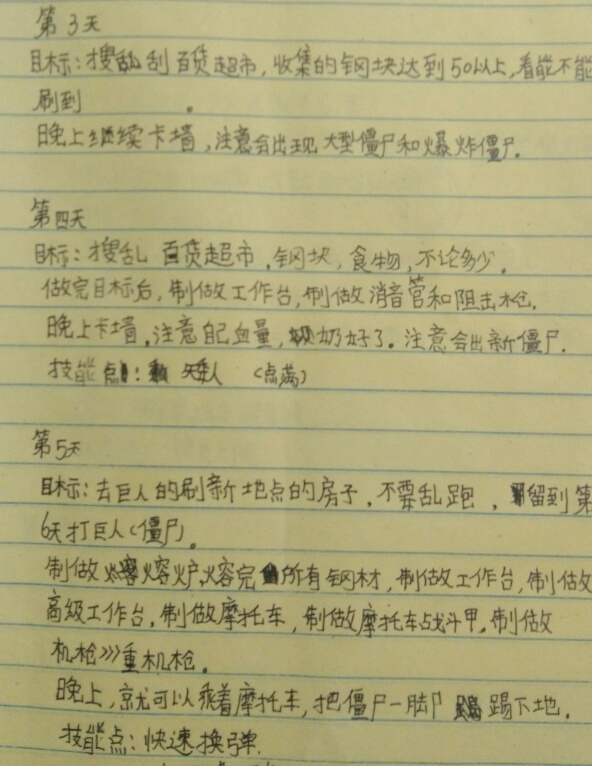 第3天
目标：搜乱刮百货超市，收集的钢块达到50以上，看能不能
刷到 。
晚上继续卡墙，注意会出现大型僵尸和爆炸僵尸。
第四天
目标：搜乱 百货超市，钢块，食物，不论多少。
做完目标后，制做工作台，制做消音管和阻击枪。
晚上卡墙，注意自己血量，奶好了。注意会出新僵尸。
技能点： 矮人 （点满）
第5天
目标：去巨人的刷新地点的房子，不要乱跑，留到第
6天打巨人（僵尸）。
制做熔炉熔完所有钢材，制做工作台，制做
高级工作台，制做摩托车，制做摩托车战斗甲，制做
机枪>>>重机枪。
晚上，就可以乘着摩托车，把僵尸一脚踢下地。
技能点：快速换弹。